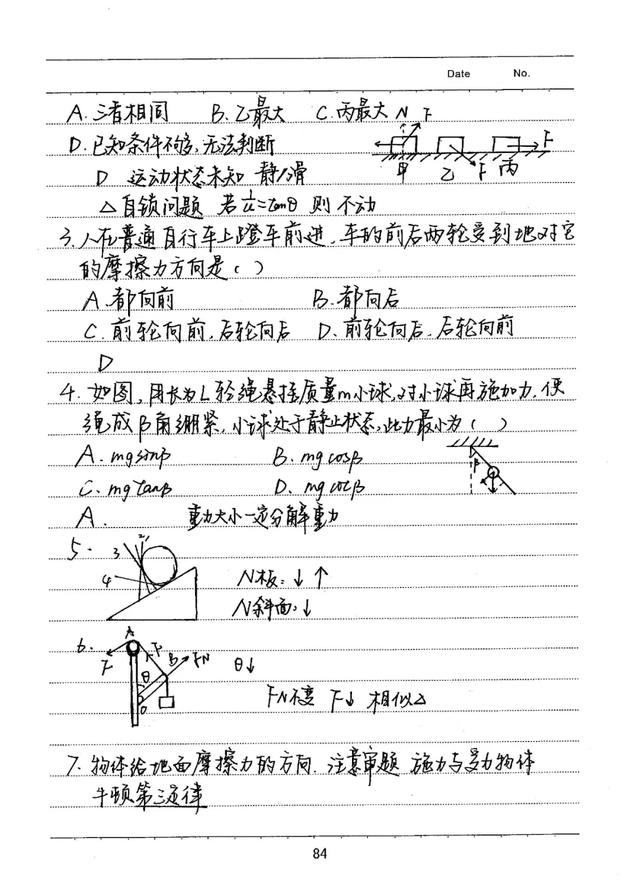 Date No.
A. 三者相同 B. 乙最大 C. 丙最大 N F
D. 已知条件不够, 无法判断 F
甲 乙 F 丙
D 运动状态未知 静/滑
△自锁问题 若 = tanθ 则不动
3. 人在普通自行车上蹬车前进, 车的前后两轮受到地对它
的摩擦力方向是 ( )
A. 都向前 B. 都向后
C. 前轮向前, 后轮向后 D. 前轮向后, 后轮向前
D
4. 如图, 用长为L轻绳悬挂质量m小球, 对小球再施加力, 使
绳成β角绷紧, 小球处于静止状态, 此力最小为 ( )
A. mgsinβ B. mgcosβ
C. mgtanβ D. mgcotβ
β
A. 重力大小一定分解重力
5. 3 2 4
N板: ↓ ↑
N斜面: ↓
6. A F F B FN θ↓
θ
O
FN不变 F↓ 相似△
7. 物体给地面摩擦力的方向. 注意审题 施力与受力物体
牛顿第三定律
84